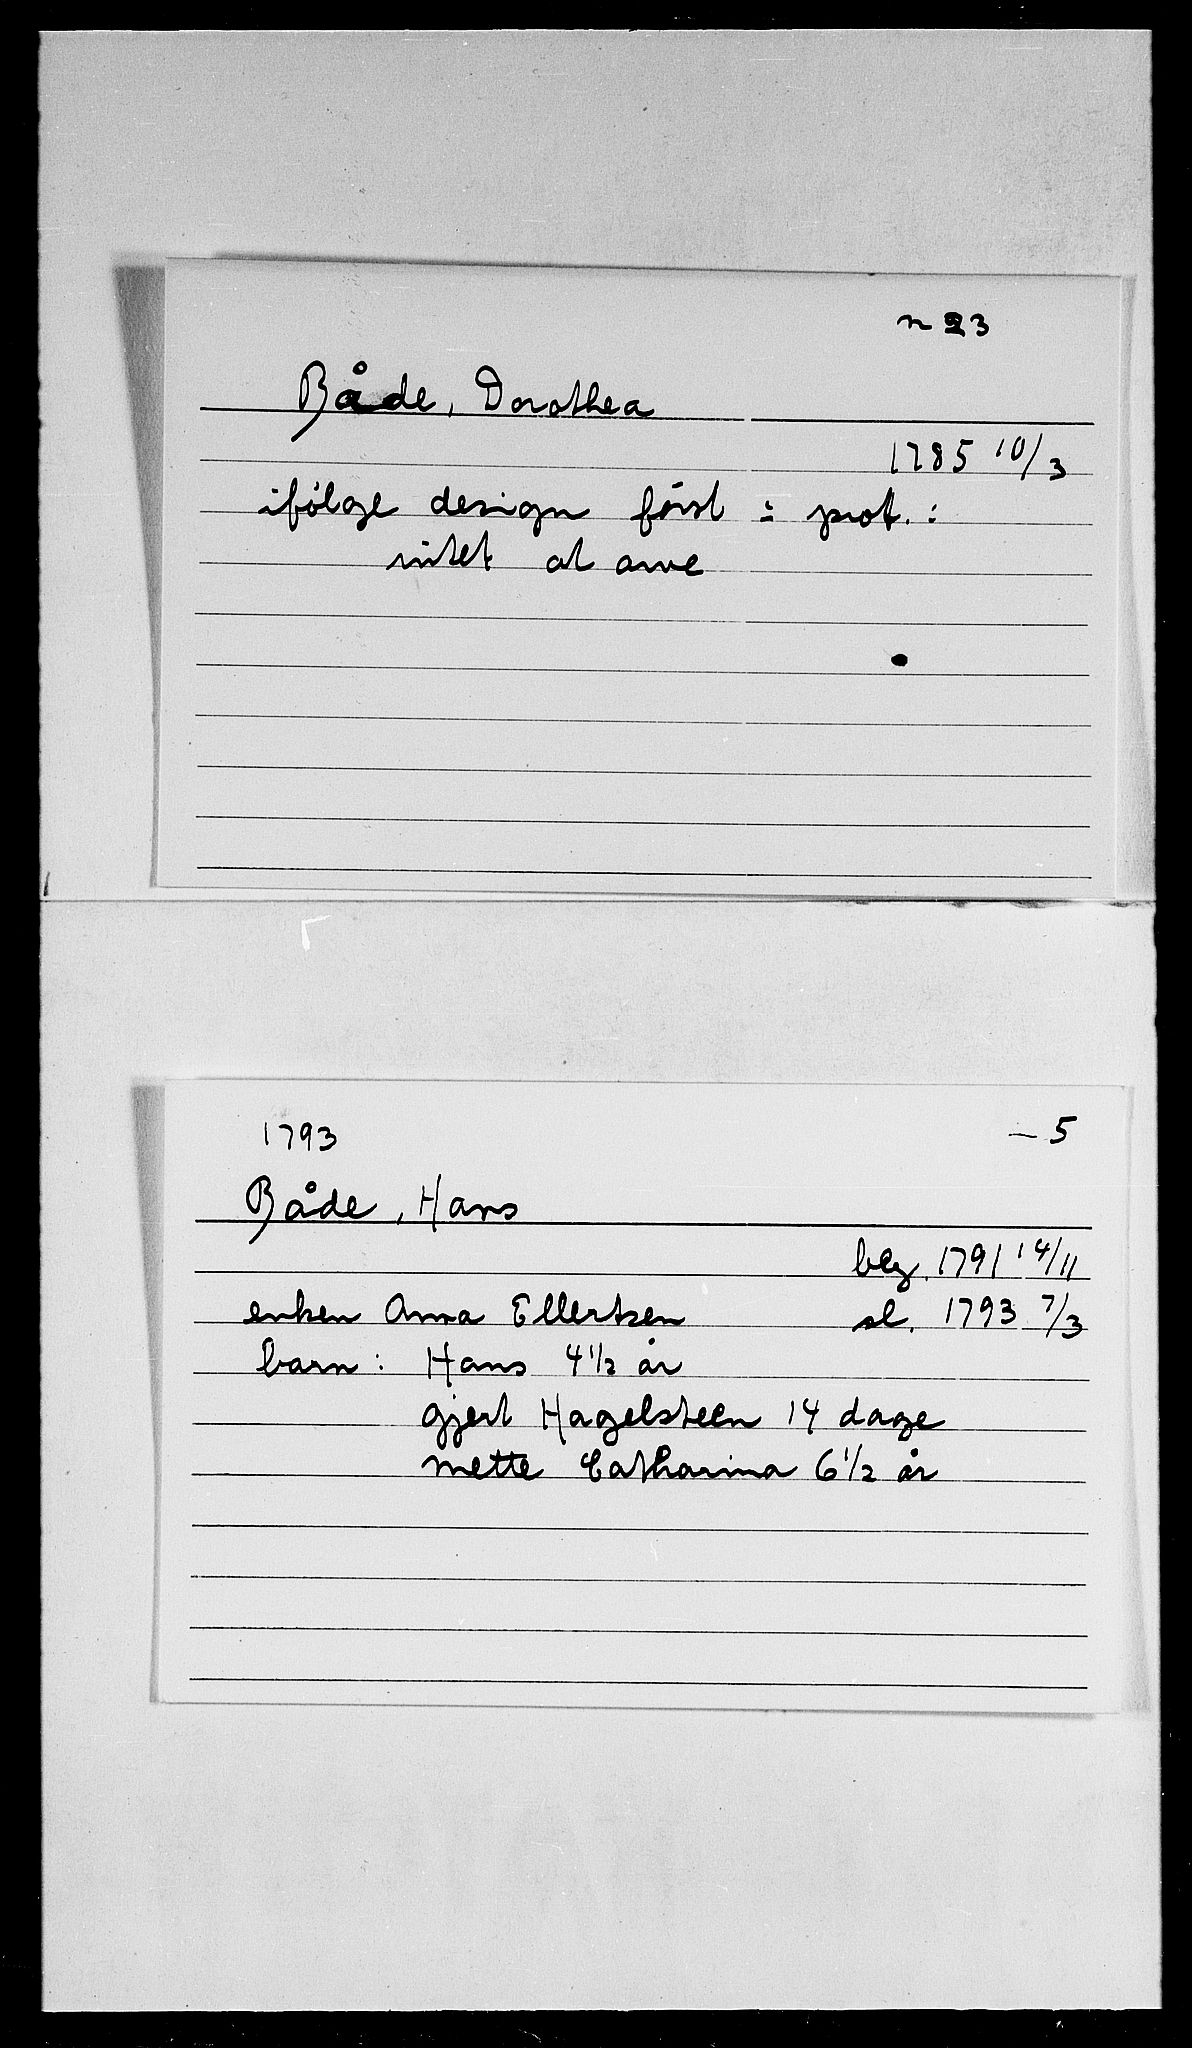 n 23
Både, Dorothea
1785 10/3
ifølge design først i prot.:
intet at arve
1793 — 5
Både, Hans
beg. 1791 14/11
enken Anna Ellertsen sl. 1793 7/3
barn: Hans 4 1/2 år
gjert Hagelsteen 14 dage
mette Catharina 6 1/2 år